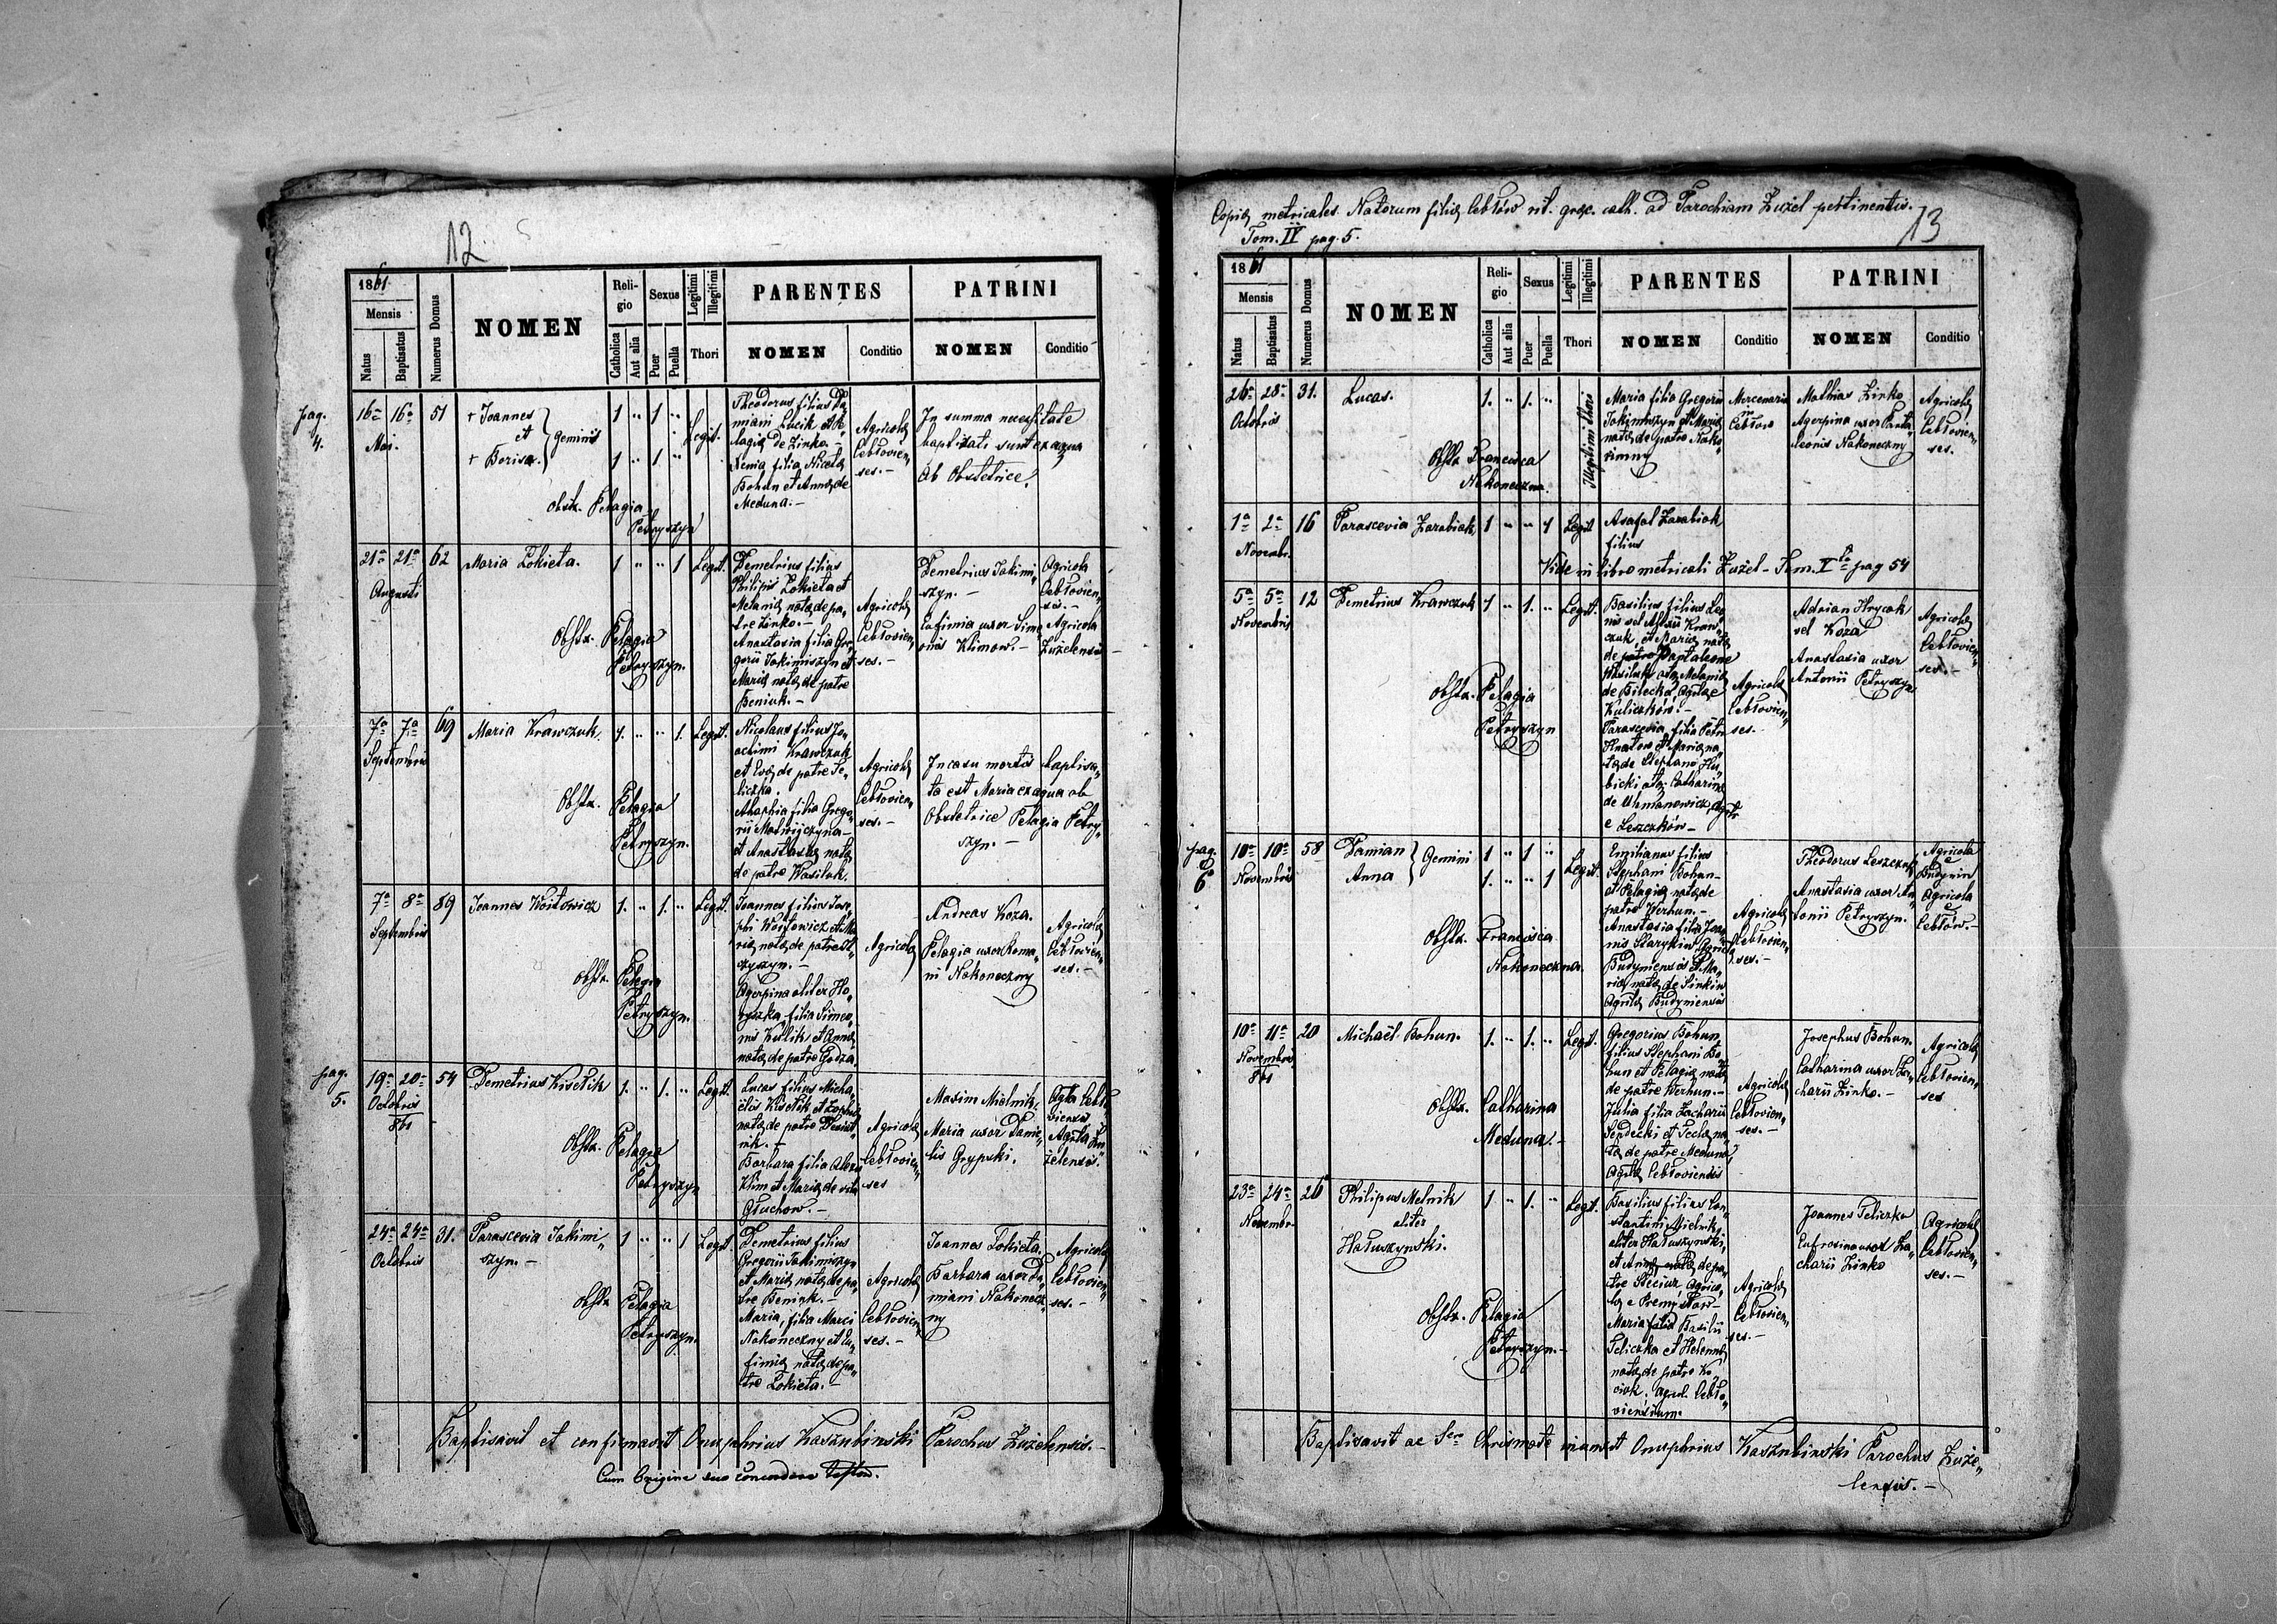 12
1861
Mensis
Natus
Baptisatus
Numerus Domus
NOMEN
Reli-
gio
Catholica
Aut alia
Sexus
Puer
Puella
Legitimi
Illegitimi
Thori
PARENTES
NOMEN
Conditio
PATRINI
NOMEN
Conditio
pag.
4.
16a 16a 51
Mai.
+ Joannes
et
+ Boris
gemini
1 " 1 "
1 " 1 "
Legit.
obstx. Pelagia
Petryszyn
Theodorus filius Da„
miani Lucik et Pe„
lagiæ de Zinko. –
Xenia filia Nicetæ
Bohun et Annæ de
Meduna. –
Agricolæ
Cebłovien„
ses. –
In summa necessitate
baptizati sunt ex aqua
ab Obstetrice.
21a 21a 62
Augusti
Maria Łokieta.
1 " " 1 Legit.
Obstx. Pelagia
Petryszyn.
Demetrius filius
Philippi Łokieta et
Melaniæ natæ de pa„
tre Zinko. –
Anastasia filia Gre„
gorii Jakimiszyn et
Mariæ natæ de patre
Beniuk. –
Agricolæ
Cebłovien„
ses. –
Demetrius Jakimi„
szyn. –
Eufimia uxor Sime„
onis Klimow. –
Agricola
Cebłovien„
sis. –
Agricola
Zuzelensis
7a 7a 69
Septembris
Maria Krawczuk.
1. " " 1. Legit.
Obstx. Pelagia
Petryszyn.
Nicolaus filius Jo„
achimi Krawczuk
et Evæ de patre Te„
liczka.
Agaphia filia Grego„
rii Matwijczyna –
et Anastasiæ natæ
de patre Wasilok.
Agricolæ
Cebłovien„
ses. –
In casu mortis baptisa„
ta est Maria ex aqua ab
Obstetrice Pelagia Petry„
szyn. –
7a 8a 89
Septembris
Joannes Woitowicz
1. " 1. " Legit.
Obstx. Pelagia
Petryszyn.
Joannes filius Jose„
phi Woitowicz et Ma„
riæ natæ de patre
Agerpina aliter Ho„
ryszka filia Simeo„
nis Kulik et Annæ
natæ de patre Godza.
Agricolæ
Andreas Koza.
Pelagia uxor Roma„
ni Nakoneczny
Agricolæ
Cebłovien„
ses. –
pag.
5.
19a 20a 54
Octobris
861
Demetrius Kisełik
1. " 1. " Legit.
Obstx. Pelagia
Petryszyn
Lucas filius Micha„
ëlis Kisełik et
natæ de patre
nik. –
Barbara filia
Klim et Mariæ de
Głuchow. –
Agricolæ
Cebłovien„
ses
Maxim Mielnik,
Maria uxor Danie„
lis Grypski.
Agla Cebło„
viensis
Agla Zu„
zelensis.
24a 24a 31.
Octobris
Parascevia Jakimi„
szyn. –
1 " " 1 Legit.
Obstx Pelagia
Petryszyn.
Demetrius filius
Gregorii Jakimiszyn
et Mariæ natæ de pa„
tre Beniuk. –
Maria, filia Marci
Nakoneczny et Eu„
fimiæ natæ de pa„
tre Łokieta. –
Agricolæ
Cebłovien„
ses. –
Joannes Łokieta.
Barbara uxor Da„
miani Nakonecz„
ny
Agricolæ
Cebłovien„
ses. –
Baptisavit et confirmavit Onuphrius Kaszubinski Parochus Zuzelensis. –
Cum Origine suo concordare testor.
Copia metricales Natorum filiæ Cebłów rit. græc. cath. ad Parochiam Żużel pertinentis.
Tom. IV pag. 5.
13
1861
Mensis
Natus
Baptisatus
Numerus Domus
NOMEN
Reli-
gio
Catholica
Aut alia
Sexus
Puer
Puella
Legitimi
Illegitimi
Thori
PARENTES
NOMEN
Conditio
PATRINI
NOMEN
Conditio
26a 28a 31.
Octobris
Lucas.
1. " 1. "
Illegitimi thori
Obstx Francisca
Nakoneczna.
Maria filia Gregorii
Jakimiszyn et Mariæ
natæ de patre
Mercenaria
in
Cebłow
Mathias Zinko
Agerpina uxor Panta„
leonis Nakoneczny
Agricolæ
Cebłovien„
ses.
1a 2a 16
Novembr.
Parascevia Zarabiak
1 " " 1 Legit
Asafat Zarabiak
filius
Vide in libro metricali Zużel – Tom. Vto pag 54
5a 5a 12
Novembris
Demetrius Krawczuk
1 " 1. " Legit.
Obstx. Pelagia
Petryszyn
Basilius filius Leo„
nis vel Kraw„
czuk, et Mariæ natæ
de patre Pantaleone
Wasiluk Melaniæ
de Bilecka
Kuliczków. –
Parascevia, filia Petri
et Mariæ na„
tæ de Stephano Hu„
bicki Catharinæ
de Uhmanowicz
e Leszczków –
Agricolæ
Cebłovien„
ses.
Adrian Hrycak
vel Koza
Anastasia uxor
Antonii Petryszyn
Agricolæ
Cebłovien„
ses. –
pag.
6
10a 10a 58
Novembris
Damian
Anna
Gemini
1 " 1 "
1. " " 1
Legit.
Obstx. Francisca
Nakoneczna.
Emilianus filius
Stephani Bohun –
et Pelagiæ natæ de
patre Werhun. –
Anastasia filia Joan„
nis Starykiw
Budyniensis et Ma„
riæ natæ de Sinkiw
Agrlæ Budyniensis
Agricolæ
Cebłovien„
ses. –
Theodorus Leszczuk
Anastasia uxor An„
tonii Petryszyn.
Agricola
e
Budynin
Agricola
e
Cebłow. –
10a 11a 20
Novembris
861
Michaël Bohun.
1. " 1. " Legit.
Obstx. Catharina
Meduna. –
Gregorius Bohun
filius Stephani Bo„
hun et Pelagiæ natæ
de patre Werhun. –
Julia filia Zacharii
Sendecki et Teclæ na„
tæ de patre Meduna,
Agrlæ Cebłoviensis
Agricolæ
Cebłovien„
ses. –
Josephus Bohun.
Catharina uxor Za„
charii Zinko. –
Agricolæ
Cebłovien„
ses
23a 24a 26
Novembr.
Philipus Melnik
aliter
Hałuszynski.
1 " 1. " Legit.
Obstx. Pelagia
Petryszyn. –
Basilius filius Con„
stantini Mielnik,
aliter Hałuszynski,
et Annæ natæ de pa„
tre Steciuz, Agrico„
læ e Premysłow –
Maria filia Basilii
Teliczka et Helenæ
natæ de patre Ko„
ciuk. Agricol. Cebło„
viensium.
Agricolæ
Cebłovien„
ses. –
Joannes Teliczka
Eufrosina uxor Za„
charii Zinko
Agricolæ
Cebłovien„
ses. –
Baptisavit ac Sro Chrismate inunxit Onuphrius Kaszubinski Parochus Zuże„
lensis. –